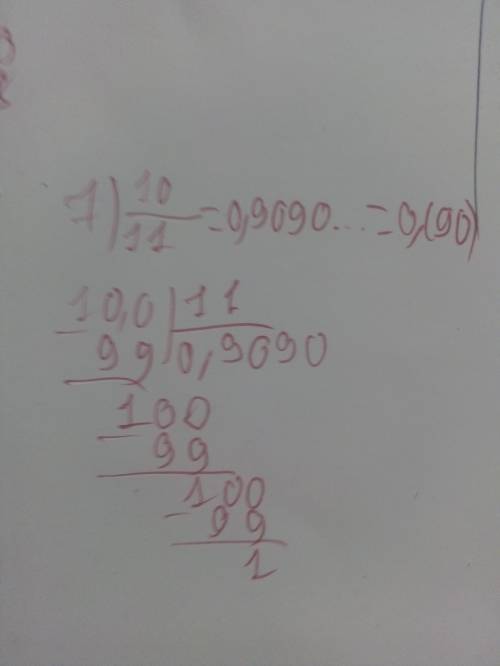 7) 10/11 = 0,9090... = 0,(90)
10,0 | 11
- 99 | 0,9090
100
- 99
100
- 99
1